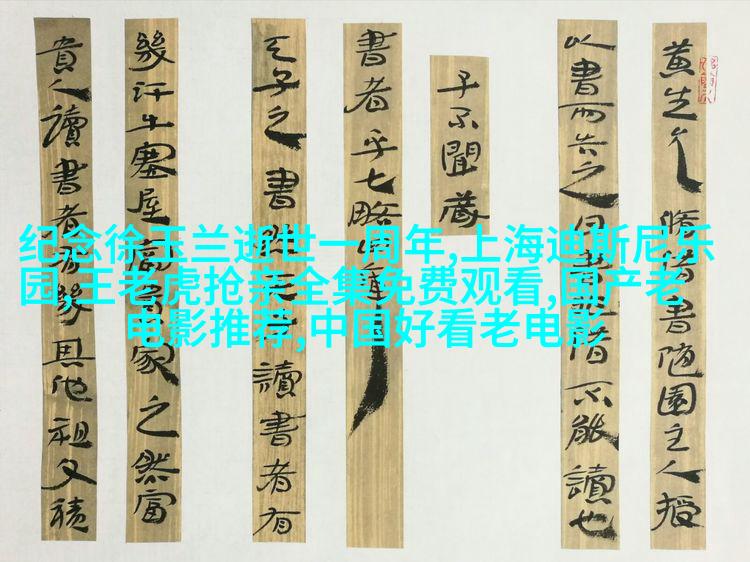 黄生允修借書隨園主人授
以書而告之曰書非借不能讀也
子不聞藏
書者乎七略四庫
天子之書然天子讀書者有
幾汗牛塞屋富貴家之然富
貴人讀書者有幾其他祖父積
纪念徐玉兰逝世一周年,上海迪斯尼乐
园,王老虎抢亲全集免费观看,国产老
电影推荐,中国好看老电影